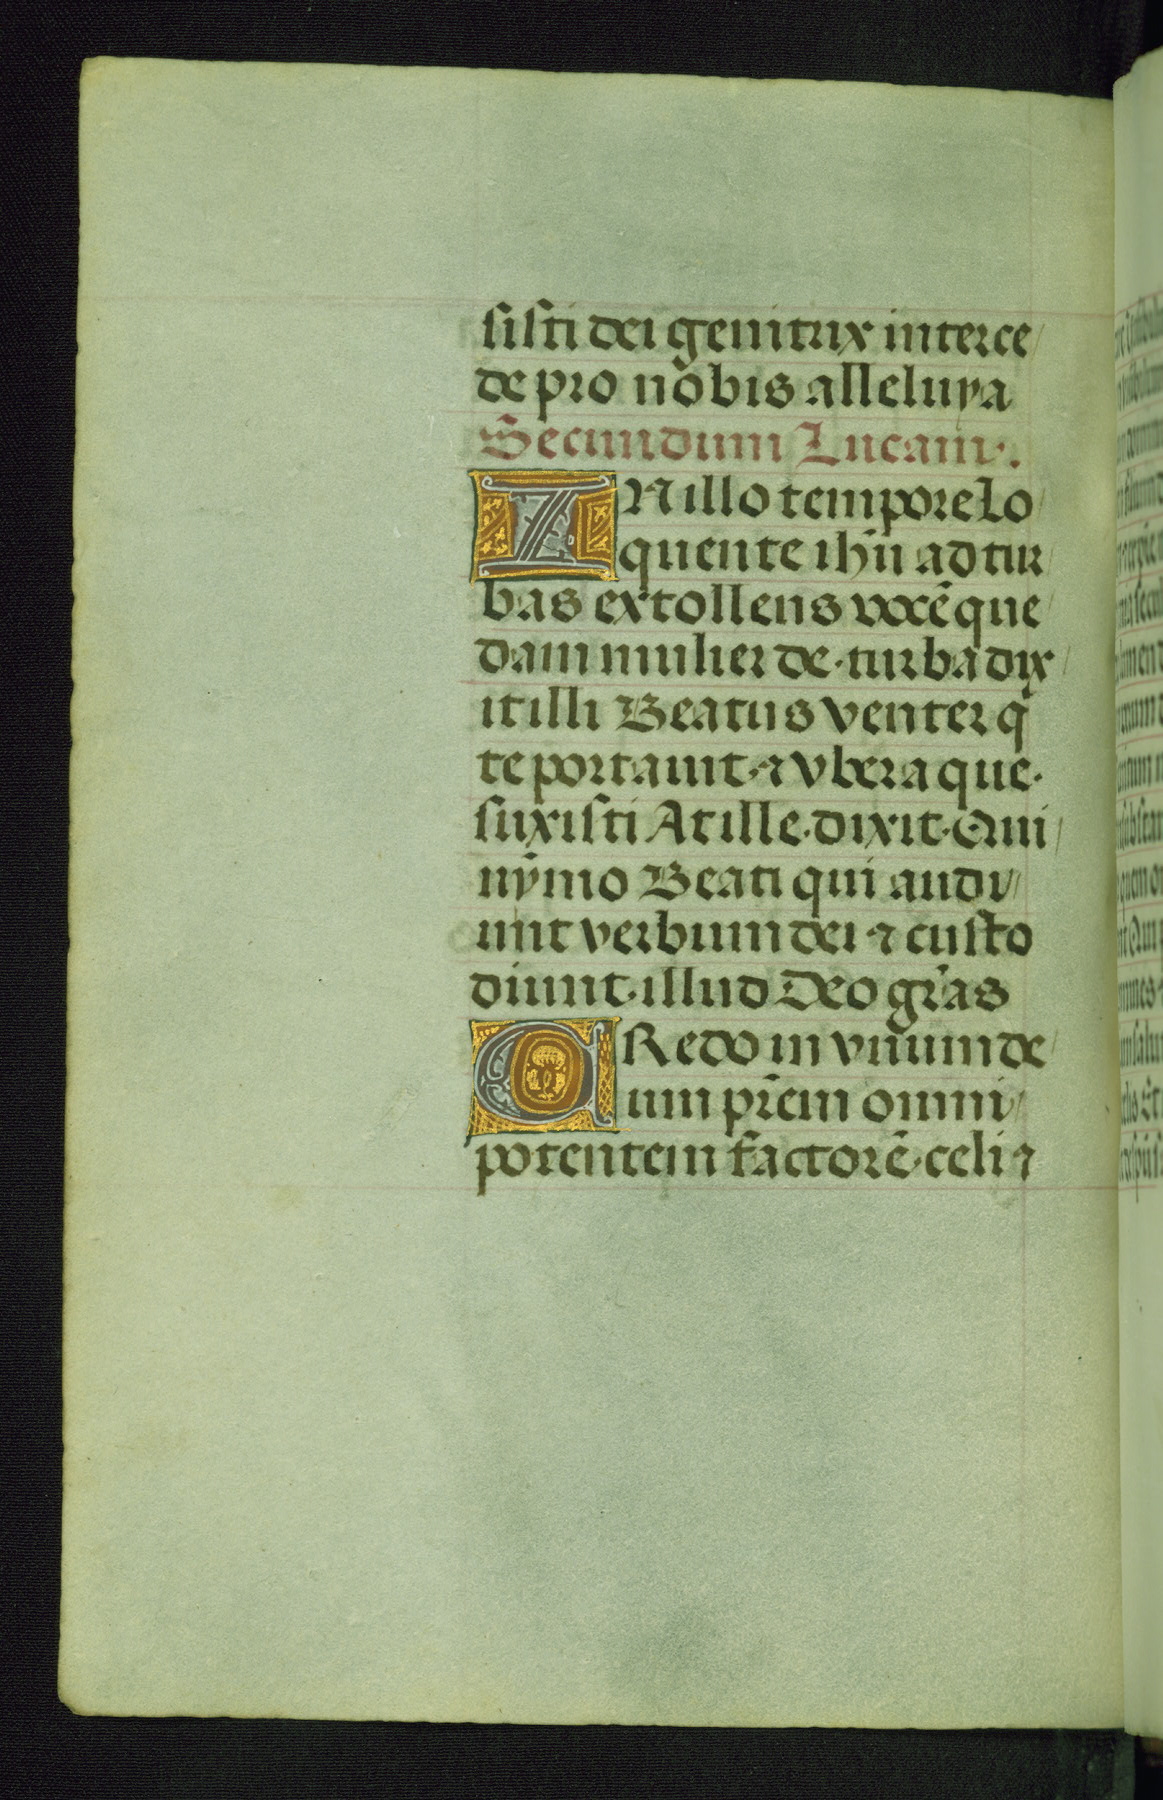 sisti dei genitrix interce
de pro nobis alleluya
Secundum Lucam.
IN illo tempore Lo
quente ihū ad tur
bas extollens vocē que
dam mulier de turba dix
it illi Beatus venter q̄
te portauit ⁊ vbera que
suxisti At ille dixit Qui
nȳmo Beati qui audi
unt verbum dei ⁊ custo
diunt illud Deo gr̄as
CRedo in vnum de
um pr̄em omni
potentem factorē celi ⁊